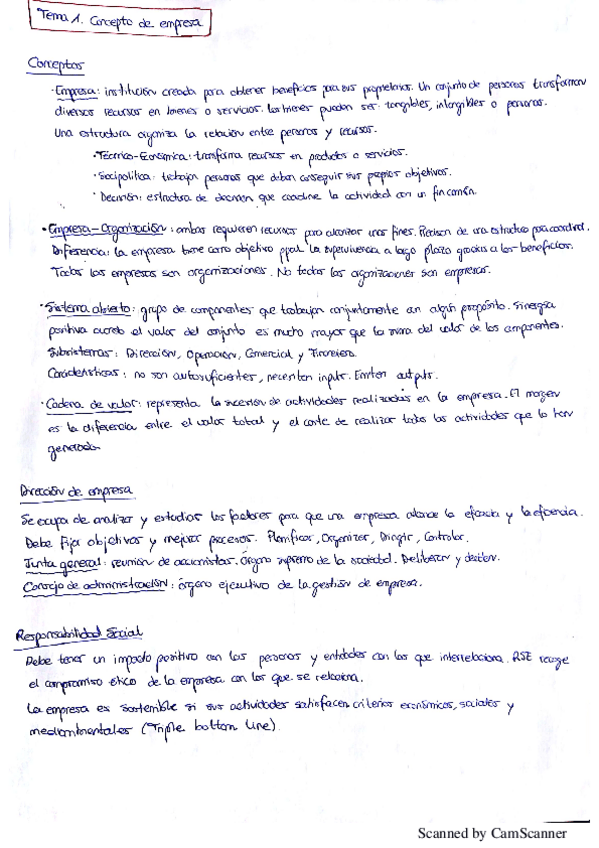 Tema 1. Concepto de empresa
Conceptos
· Empresa: institución creada para obtener beneficios para sus propietarios. Un conjunto de personas transforman
diversos recursos en bienes o servicios. Los bienes pueden ser: tangibles, intangibles o personas.
Una estructura organiza la relación entre personas y recursos.
· Técnico-Económica: transforma recursos en productos o servicios.
· Sociopolítica: trabajan personas que deben conseguir sus propios objetivos.
· Decisión: estructura de decisión que coordine la actividad con un fin común.
· Empresa-Organización: ambas requieren recursos para alcanzar unos fines. Precisan de una estructura para coordinar.
Diferencia: la empresa tiene como objetivo ppal la supervivencia a largo plazo gracias a los beneficios.
Todas las empresas son organizaciones. No todas las organizaciones son empresas.
· Sistema abierto: grupo de componentes que trabajan conjuntamente con algún propósito. Sinergia
positiva cuando el valor del conjunto es mucho mayor que la suma del valor de los componentes.
Subsistemas: Dirección, Operación, Comercial y Financiero.
Características: no son autosuficientes, necesitan inputs. Emiten outputs.
· Cadena de valor: representa la sucesión de actividades realizadas en la empresa. El margen
es la diferencia entre el valor total y el coste de realizar todas las actividades que lo han
generado.
Dirección de empresa
Se ocupa de analizar y estudiar los factores para que una empresa alcance la eficacia y la eficiencia.
Debe fijar objetivos y mejorar procesos. Planificar, Organizar, Dirigir, Controlar.
Junta general: reunión de accionistas. Órgano supremo de la sociedad. Deliberan y deciden.
Consejo de administración: órgano ejecutivo de la gestión de empresa.
Responsabilidad Social
Debe tener un impacto positivo con las personas y entidades con las que interrelaciona. RSE recoge
el compromiso ético de la empresa con los que se relaciona.
La empresa es sostenible si sus actividades satisfacen criterios económicos, sociales y
medioambientales (Triple bottom line).
Scanned by CamScanner